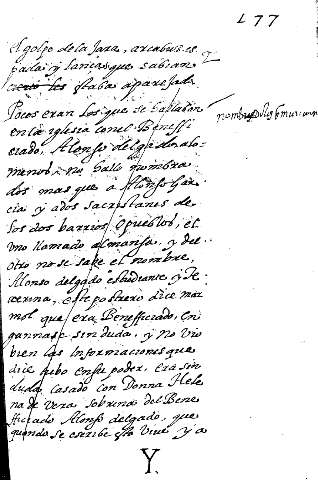 177
el golpe de la Jara, arcabus es
padas y lanças que sabian
cierto les estaba aparejada.
Pocos eran los que se hallaban
en la iglesia con el Beneffi
ciado, Alonso delgado alo
menos no hallo nombra
dos mas que a Alonso Gar
cia y a dos sacristanes de
los dos barrios o pueblos, el
uno llamado almansa, y del
otro no se sabe el nombre,
Alonso delgado estudiante y Te
xerina, este postrero dice mar
mol que era Benefficiado, en
gannase sin duda, y No vio
bien las Informaciones que
dice tubo en su poder, era sin
duda casado con Donna Hele
na de Vera sobrina del Bene
fficiado Alonso delgado, que
quando se escribe esto Vive y a
Y.